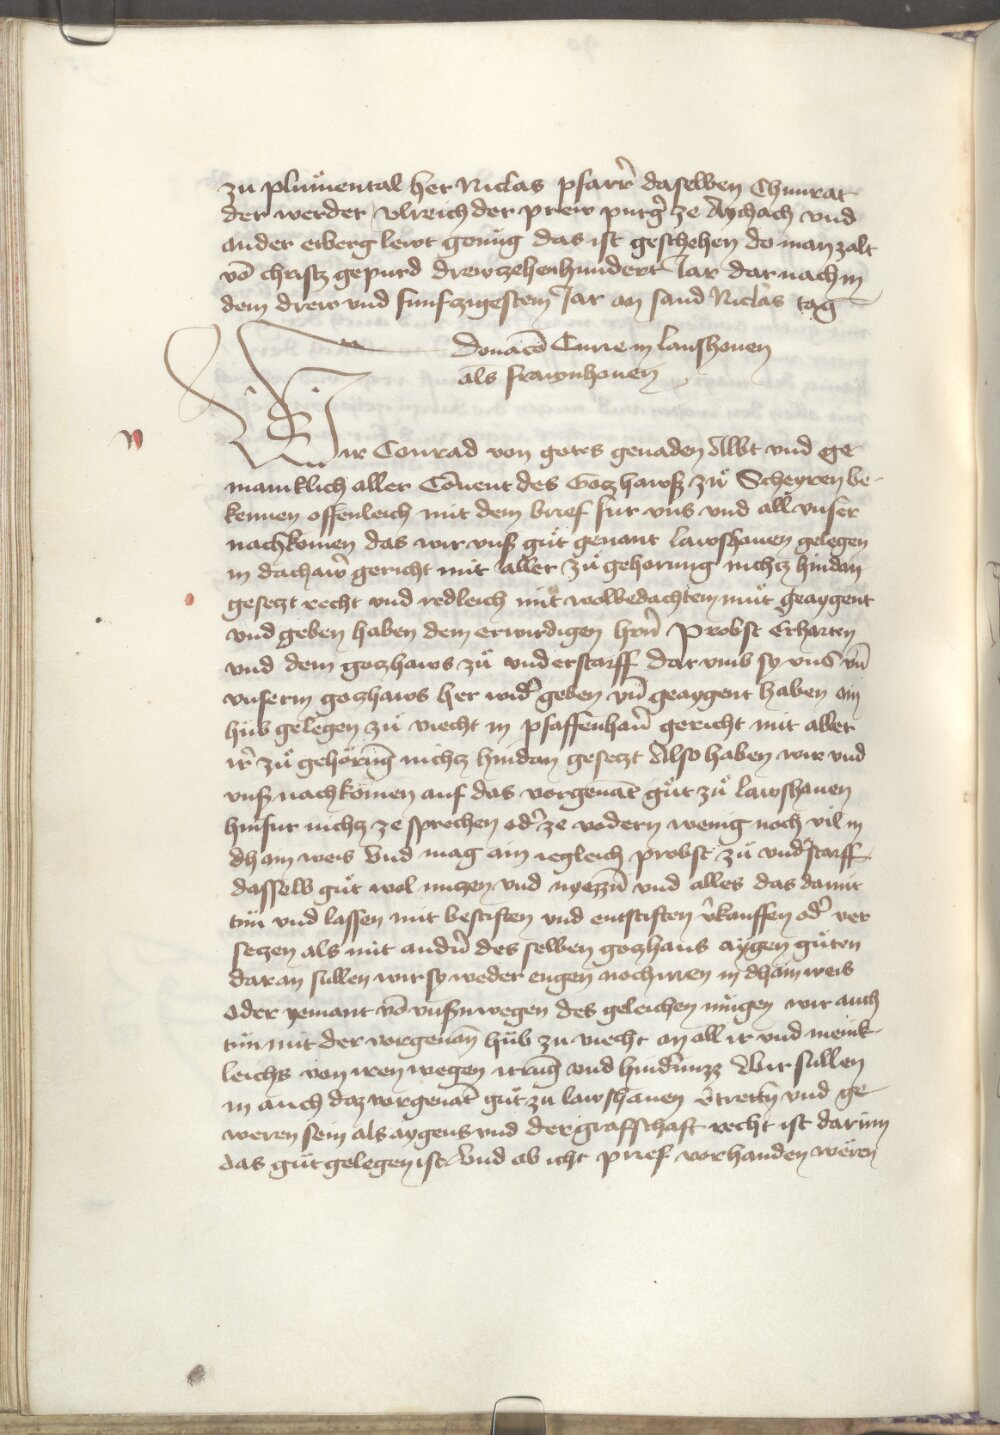 zu plům̄ental her Niclas pfarr̄ daselben Chunrat
der werder / vlreich der prew purḡ ze Aychach vnd
ander erberg lewt genůg das ist geschehen do man zalt
vō christz gepurd drewzehenhundert Jar dar nach in
dem drew vnd funfczigestem Jar an sand Niclas tag
Donac̄o Curie in laushouen
als frawnhouen
Wir Conrad von gotes genaden Abbt vnd ge
mainklich aller Cōuent des Goczhawsz zů Scheyren be-
kennen offenleich mit dem brief fur vns vnd all vnser
nachkomen das wir vnsz gůt genant lawshauen gelegen
in dachaw̄r gericht mit aller zů gehorung nichtz hindan
gesetzt recht vnd redleich mit wolbedachtem můt geaygent
vnd geben haben dem erwirdigen hrn̄ Probst Erharten
vnd dem goczhaws zů vnderstorff dar vmb sy vns vn̄
vnserm goczhaws her wid̄ geben vn̄ geaygent haben ain
hůb gelegen zů viecht in pfaffenhau̅ gericht mit aller
ir̄ zů gehörūg nichtz hindan gesetzt Also haben wir vnd
vnsz nachkömen auf das vorgenāt gůt zů lawshauen
hinfur nichtz ze sprechen od̄ ze vodern wenig noch vil in
dhain weis Vnd mag ain iegleich probst zů vnd̄storff
dasselb gůt wol nuczen vnd nyezzn̄ vnd alles das damit
tůn vnd lassen mit bestiften vnd entstiften v̄kauffen od̄ ver
seczen als mit andn̄ des selben goczhaus aygen gůten
daran sullen wir sy weder engen noch irren in dhain weis
oder yemant vō vnsn̄ wegen des geleichen mugen wir auch
tůn mit der vorgenan̄ hůb zu viecht an all ir vnd menik-
leichs von iren wegen irrūg vnd hind̄nuzz Wir sullen
in auch daz vorgenāt gůt zu lawshauen v̄tretten vnd ge
weren sein als aygens vnd der grafschaft recht ist darinn
das gůt gelegen ist Vnd ob icht prief vorhanden wëren